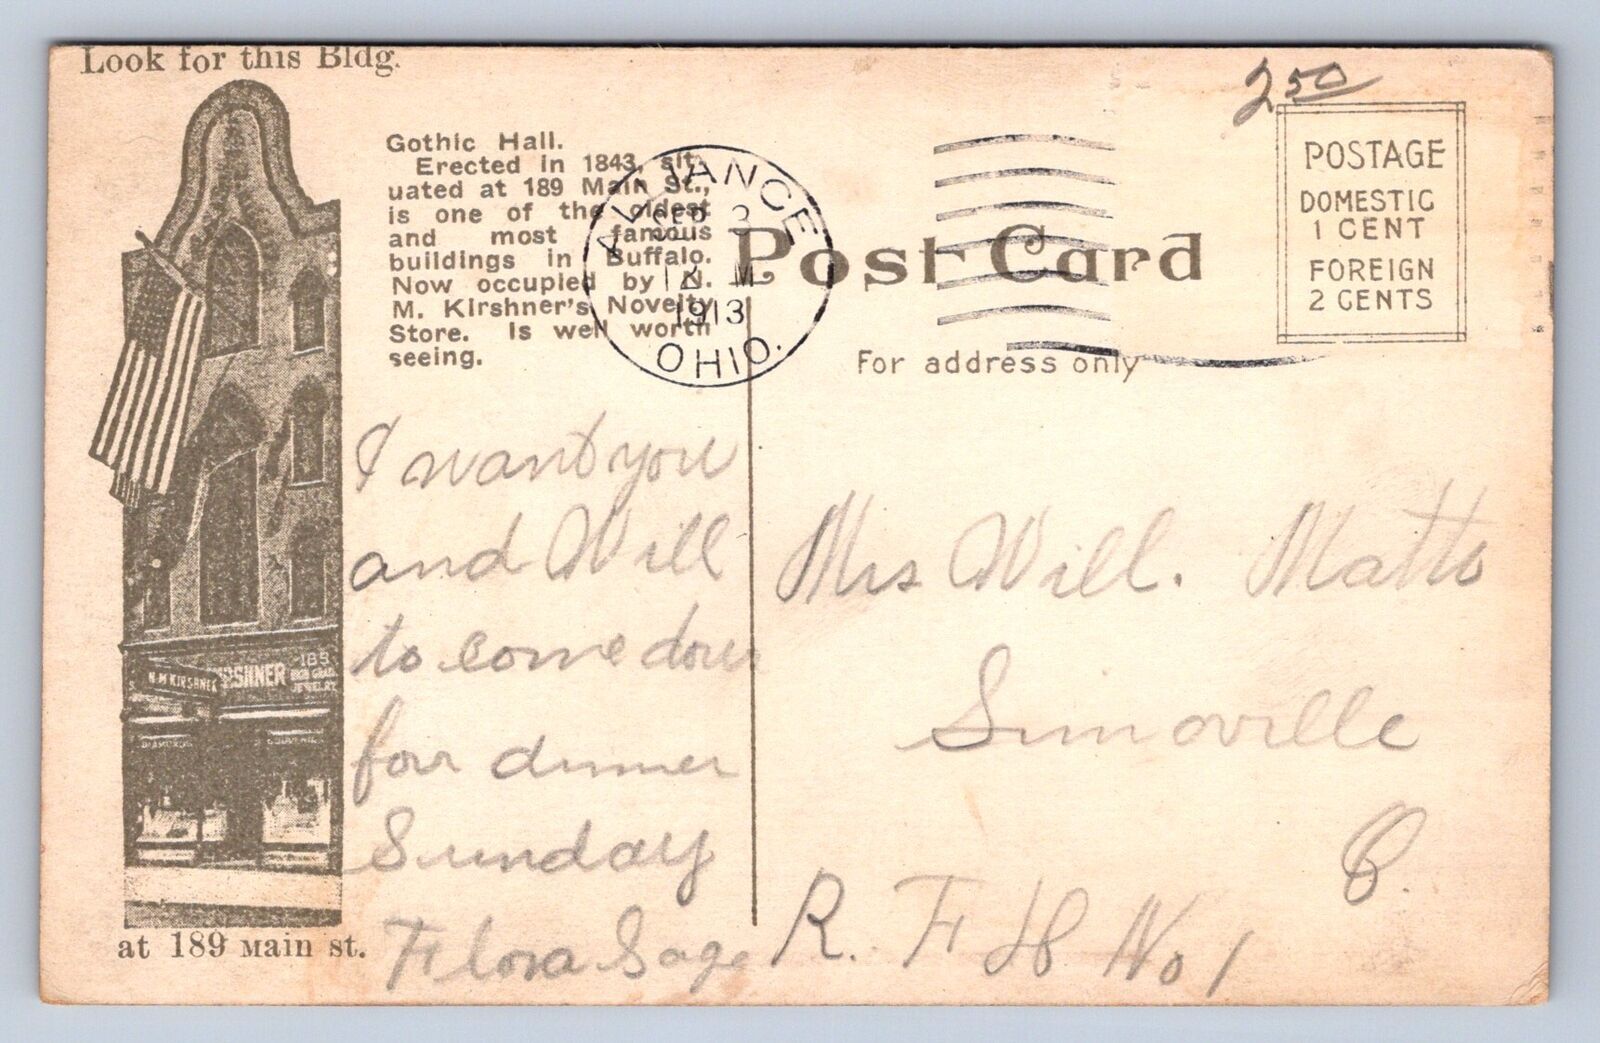 Look for this Bldg.
Gothic Hall.
Erected in 1843, sit-
uated at 189 Main St.,
is one of the oldest
and most famous
buildings in Buffalo.
Now occupied by N.
M. Kirshner's Novelty
Store. Is well worth
seeing.
N.M KIRSHNER
KIRSHNER
189
HIGH GRADE
JEWELRY
DIAMONDS
SOUVENIRS
at 189 Main st.
ALLIANCE
SEP 2
12 M
1913
OHIO.
Post Card
For address only
2 50
POSTAGE
DOMESTIC
1 CENT
FOREIGN
2 CENTS
I want you
and Will
to come down
for dinner
Sunday
Flora Sage
Mrs Will. Matts
Limaville
O.
R. F D No 1